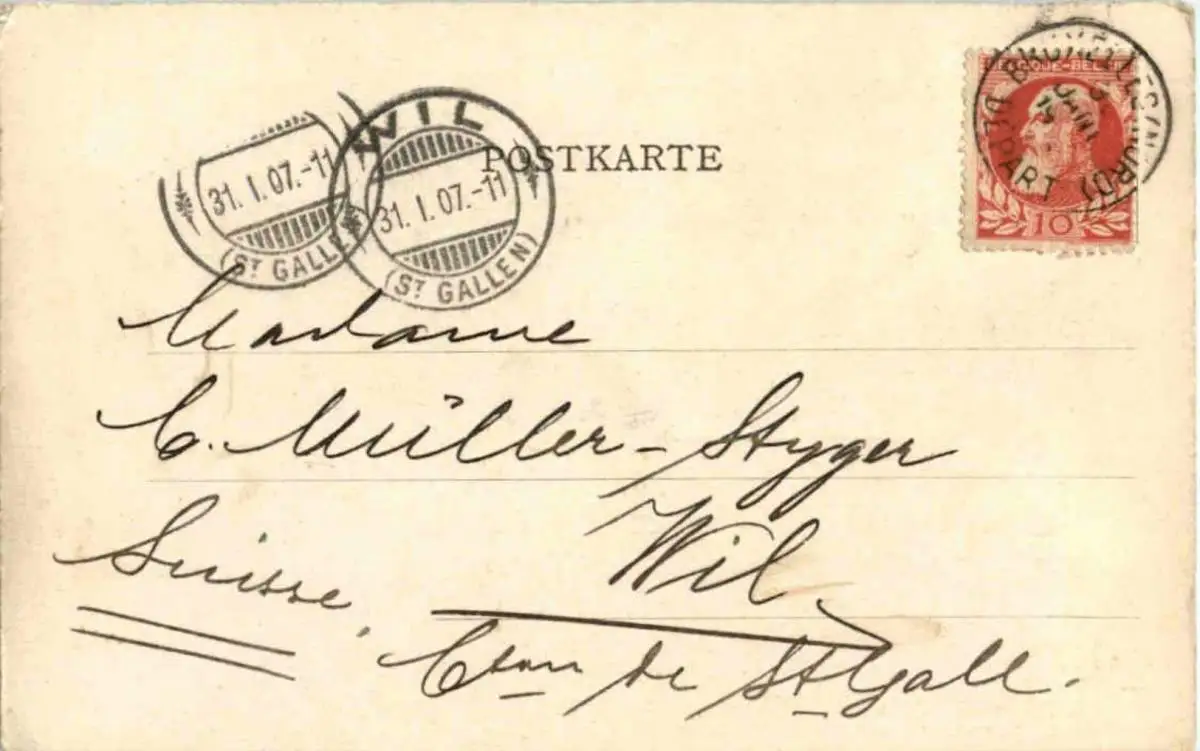 BELGIQUE-BELGIË
BRUXELLES (NORD)
DÉPART
10
WIL
31. I. 07.-11
(ST GALLEN)
31. I. 07.-11
(ST GALLEN)
POSTKARTE
Madame
C. Müller-Styger
Wil
Suisse,
Cton de St Gall.